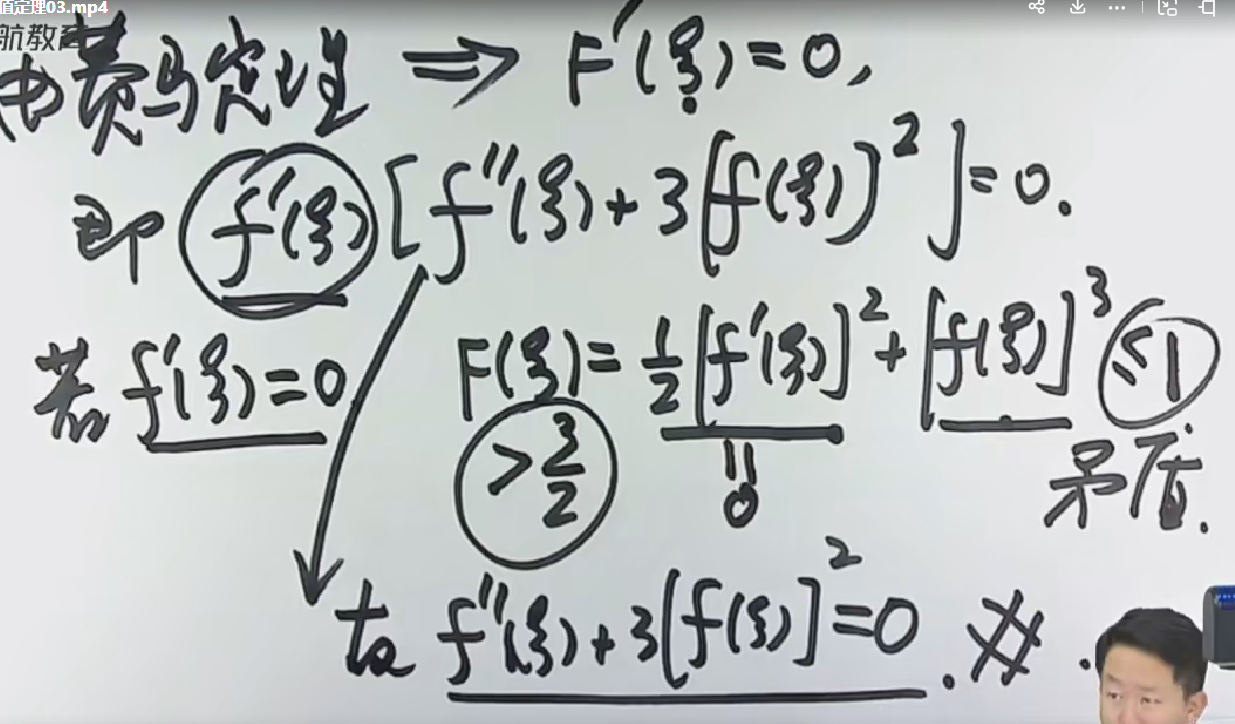 值定理03.mp4
航教育
由费马定理 ⟹ F′(ξ)=0,
即 f′(ξ)[f″(ξ)+3[f(ξ)]²]=0.
若 f′(ξ)=0 F(ξ)=½[f′(ξ)]²+[f(ξ)]³≤1
>3/2 =0 矛盾.
故 f″(ξ)+3[f(ξ)]²=0. #